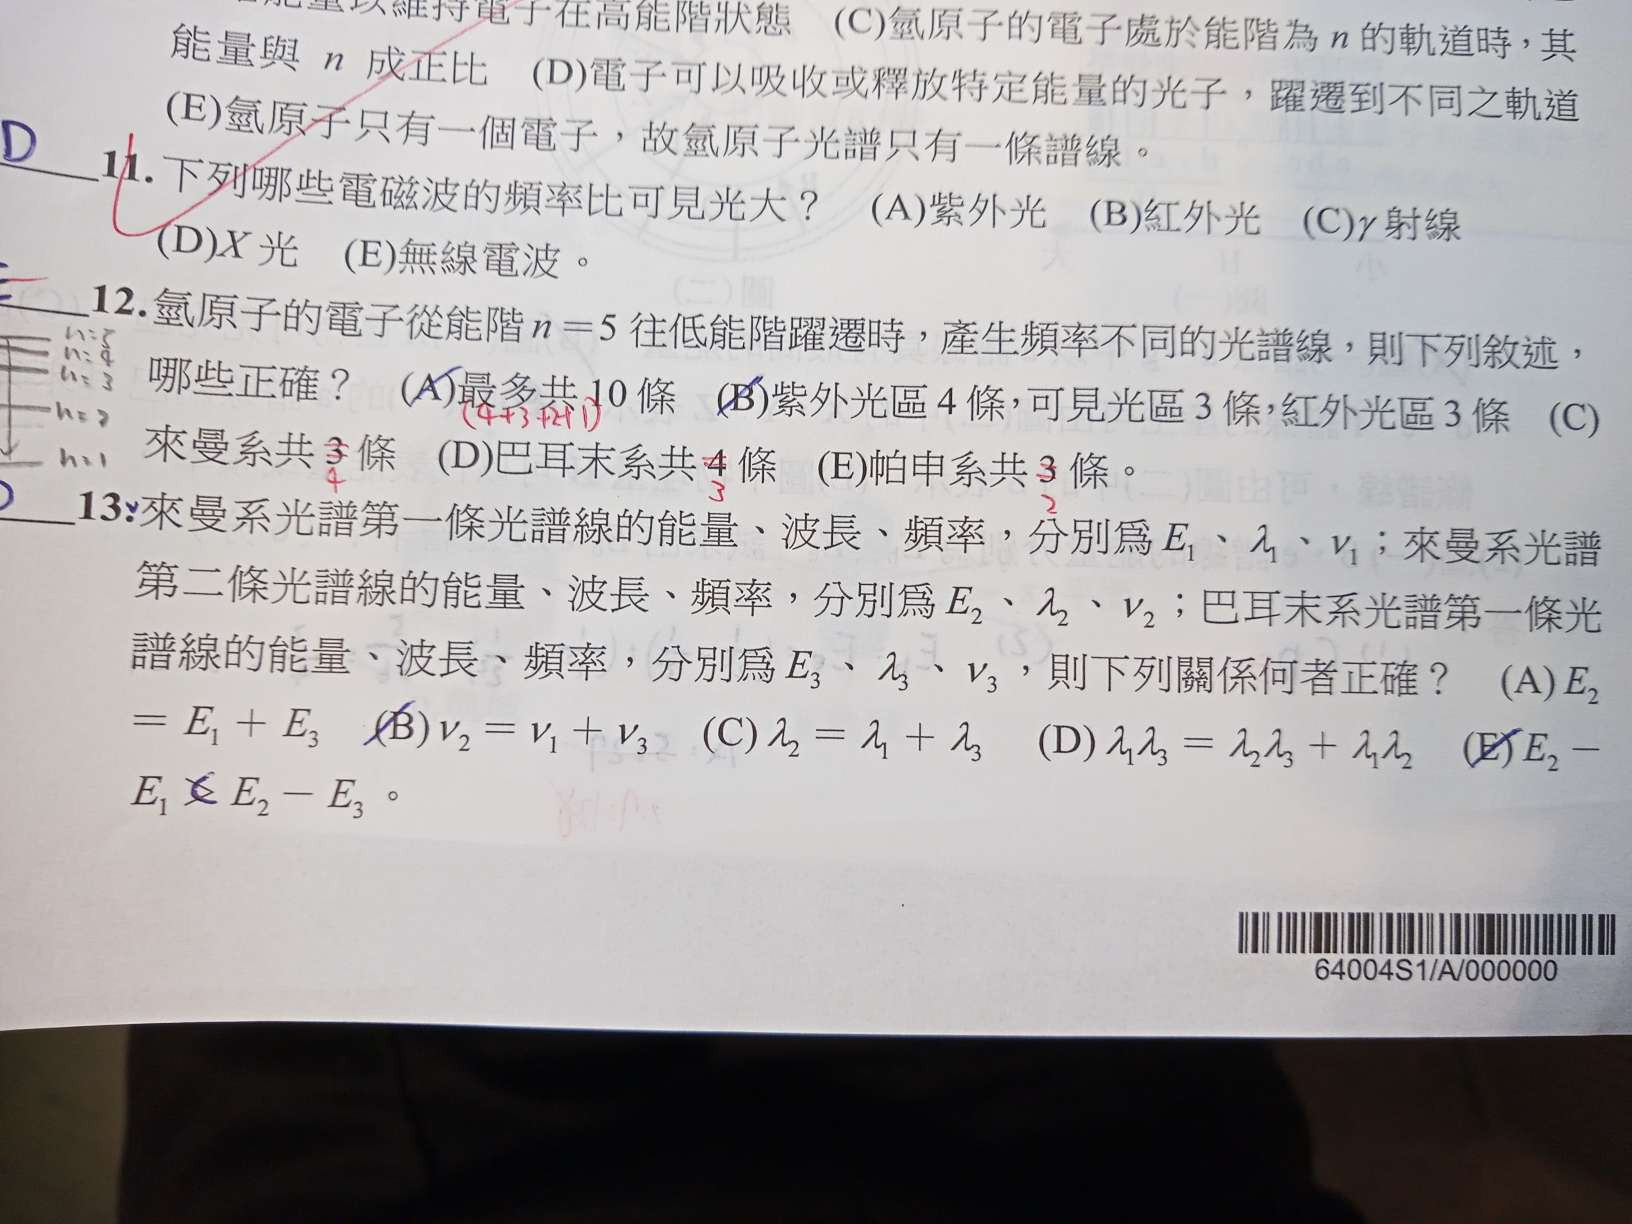 能量以維持電子在高能階狀態 (C)氫原子的電子處於能階為 n 的軌道時，其
能量與 n 成正比 (D)電子可以吸收或釋放特定能量的光子，躍遷到不同之軌道
(E)氫原子只有一個電子，故氫原子光譜只有一條譜線。
D 11. 下列哪些電磁波的頻率比可見光大？ (A)紫外光 (B)紅外光 (C)γ射線
(D)X光 (E)無線電波。
12. 氫原子的電子從能階 n＝5 往低能階躍遷時，產生頻率不同的光譜線，則下列敘述，
n=5
n=4
n=3
n=2
n=1
哪些正確？ (A)最多共 10 條 (B)紫外光區 4 條，可見光區 3 條，紅外光區 3 條 (C)
(4+3+2+1)
來曼系共 3 條 (D)巴耳末系共 4 條 (E)帕申系共 3 條。
4 3 2
13. 來曼系光譜第一條光譜線的能量、波長、頻率，分別為 E₁、λ₁、ν₁；來曼系光譜
第二條光譜線的能量、波長、頻率，分別為 E₂、λ₂、ν₂；巴耳末系光譜第一條光
譜線的能量、波長、頻率，分別為 E₃、λ₃、ν₃，則下列關係何者正確？ (A) E₂
= E₁ + E₃ (B) ν₂ = ν₁ + ν₃ (C) λ₂ = λ₁ + λ₃ (D) λ₁λ₃ = λ₂λ₃ + λ₁λ₂ (E) E₂ −
E₁ < E₂ − E₃。
64004S1/A/000000